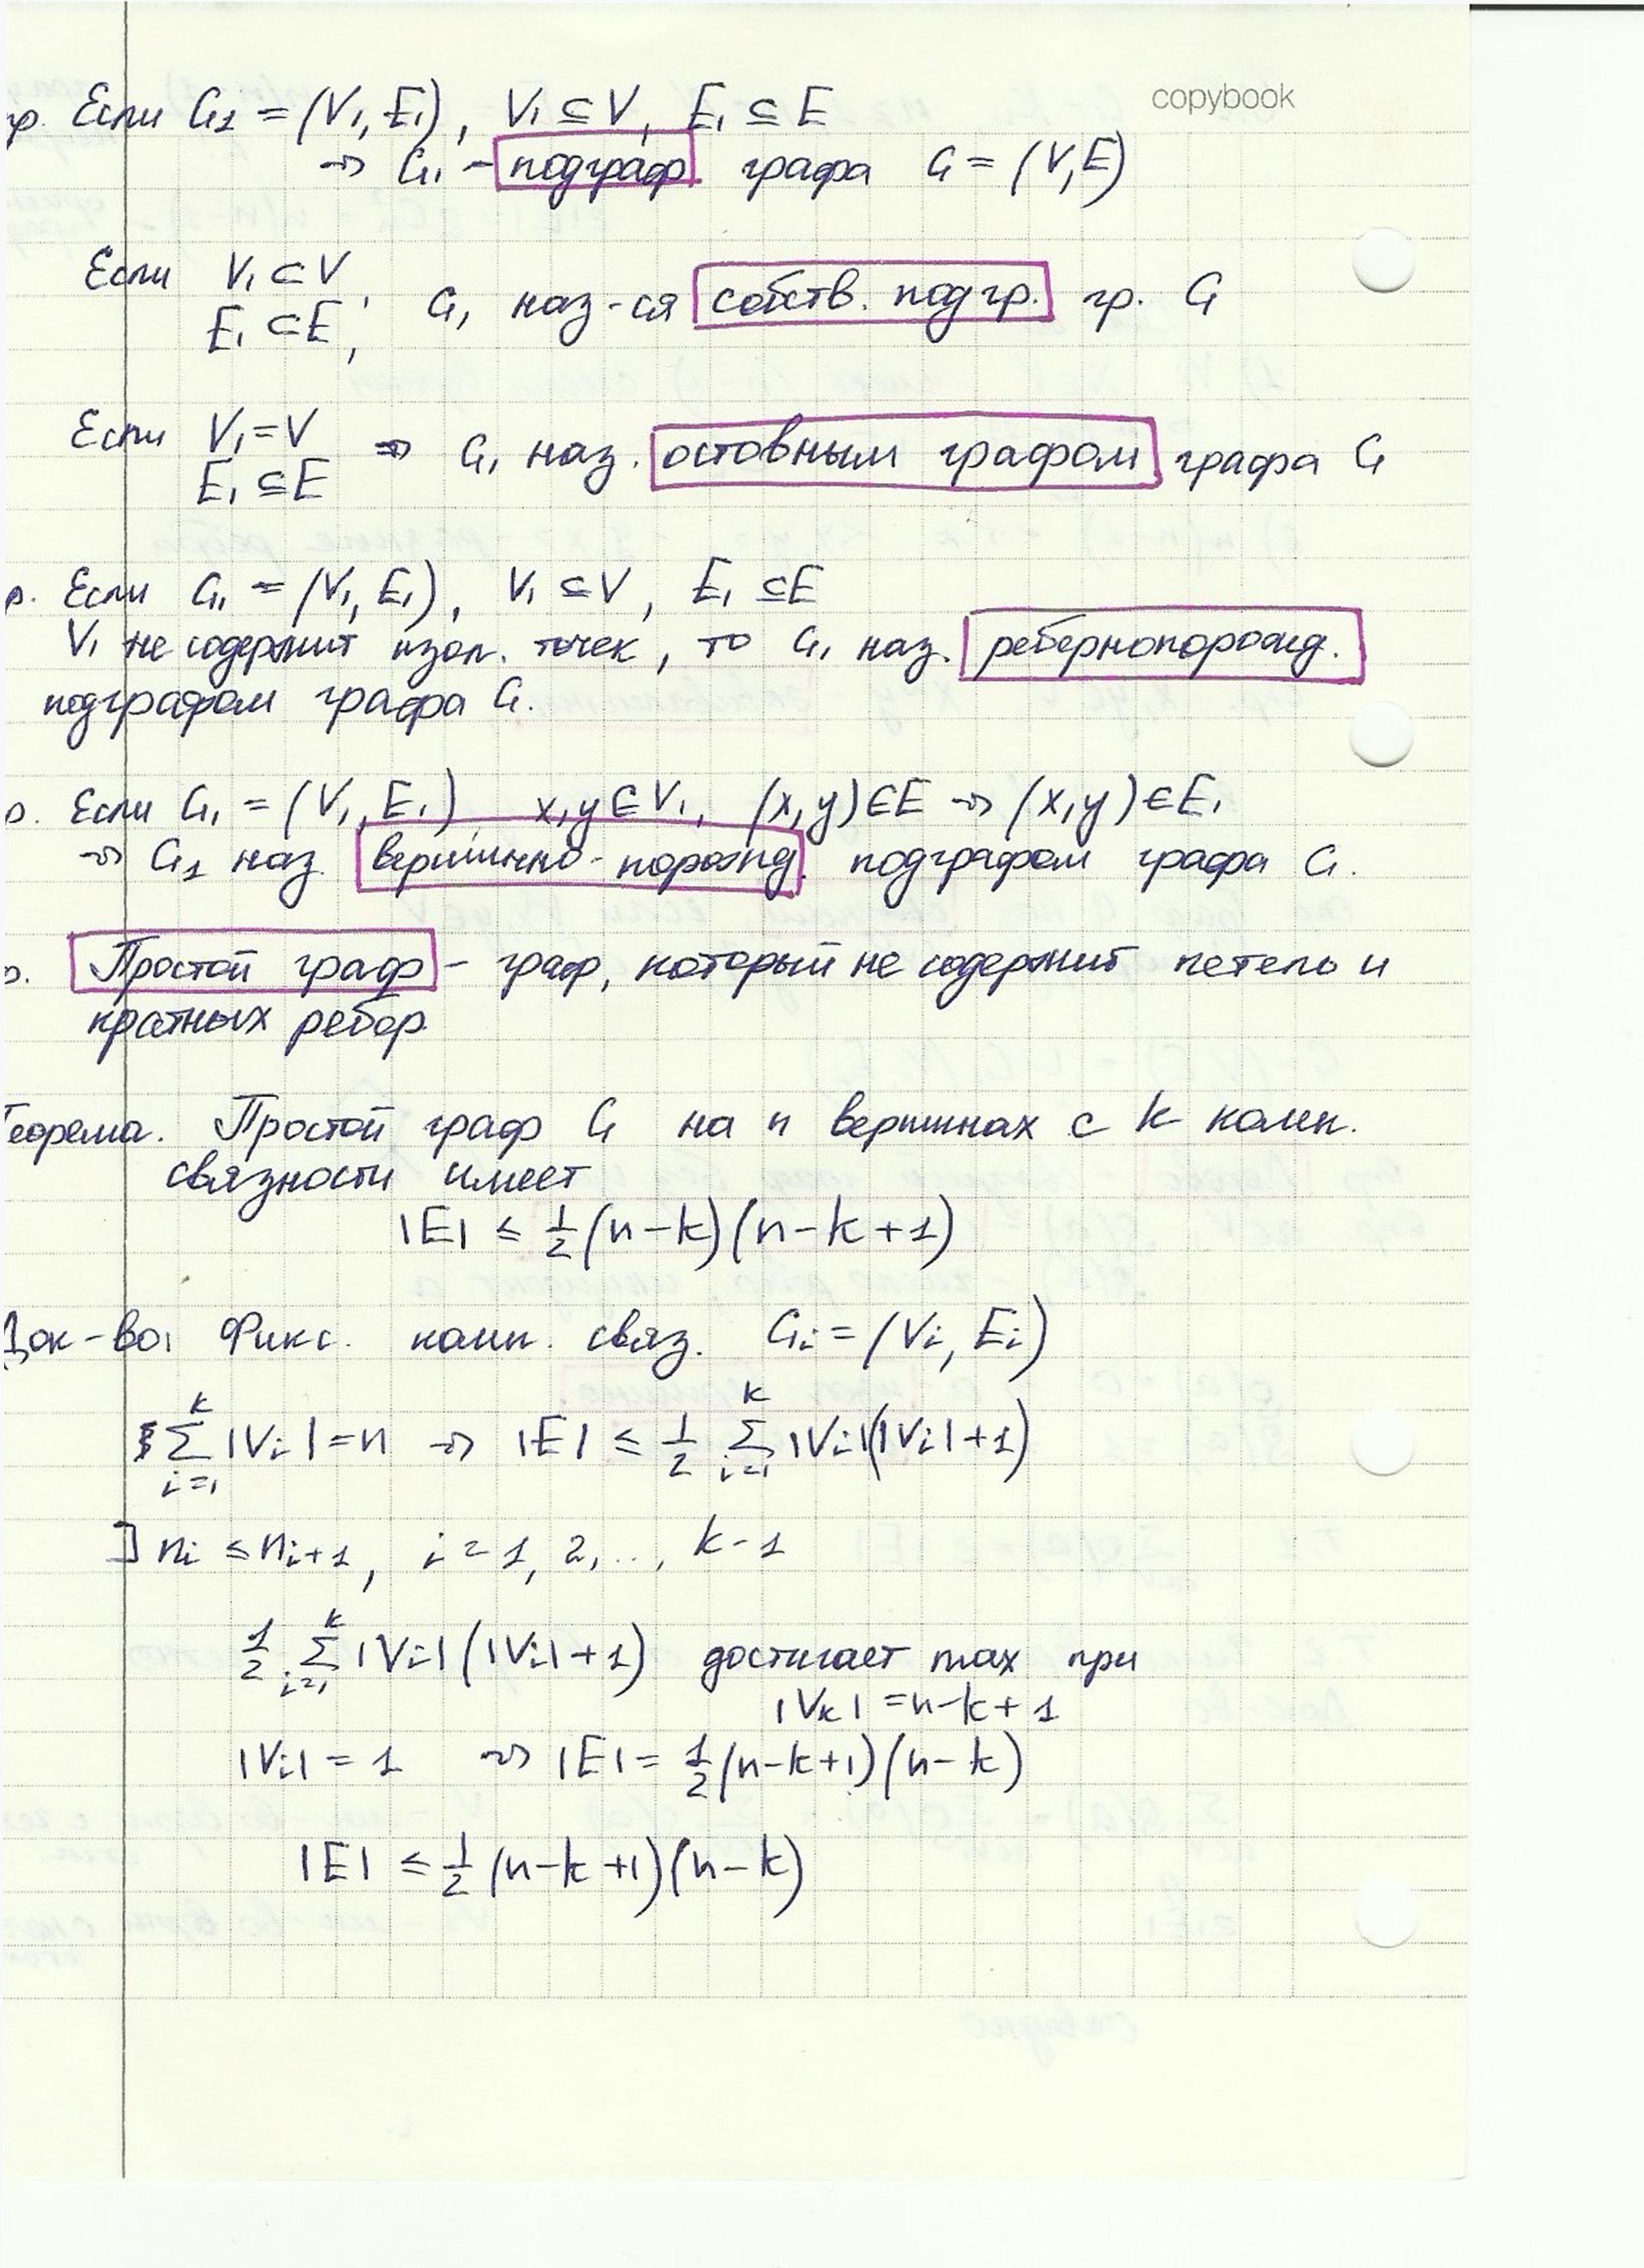 copybook
р. Если G1 = (V1, E1), V1 ⊆ V, E1 ⊆ E
⇒ G1 – подграф графа G = (V, E)
Если V1 ⊂ V
E1 ⊂ E, G1 наз-ся собств. подгр. гр. G
Если V1 = V
E1 ⊆ E ⇒ G1 наз. остовным графом графа G
р. Если G1 = (V1, E1), V1 ⊆ V, E1 ⊆ E
V1 не содержит изол. точек, то G1 наз. ребернопорожд.
подграфом графа G.
р. Если G1 = (V1, E1), x, y ∈ V1, (x, y) ∈ E ⇒ (x, y) ∈ E1
⇒ G1 наз. вершинно-порожд. подграфом графа G.
р. Простой граф – граф, который не содержит петель и
кратных ребер.
Теорема. Простой граф G на n вершинах с k комп.
связности имеет
|E| ≤ 1/2 (n-k)(n-k+1)
Док-во: Фикс. комп. связ. Gi = (Vi, Ei)
∑_{i=1}^{k} |Vi| = n ⇒ |E| ≤ 1/2 ∑_{i=1}^{k} |Vi|(|Vi|+1)
] ni ≤ ni+1, i = 1, 2, ..., k-1
1/2 ∑_{i=1}^{k} |Vi|(|Vi|+1) достигает max при
|Vk| = n-k+1
|Vi| = 1 ⇒ |E| = 1/2 (n-k+1)(n-k)
|E| ≤ 1/2 (n-k+1)(n-k)